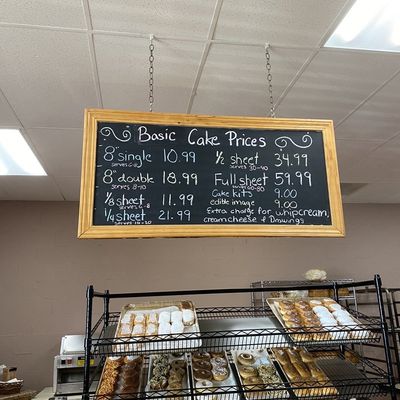 Basic Cake Prices
8" single 10.99
serves 6-8
8" double 18.99
serves 8-10
1/8 sheet 11.99
serves 6-8
1/4 sheet 21.99
serves
1/2 sheet 34.99
serves 30-40
Full sheet 59.99
Cake kits 9.00
edible image 9.00
Extra charge for whipcream,
creamcheese & Drawings